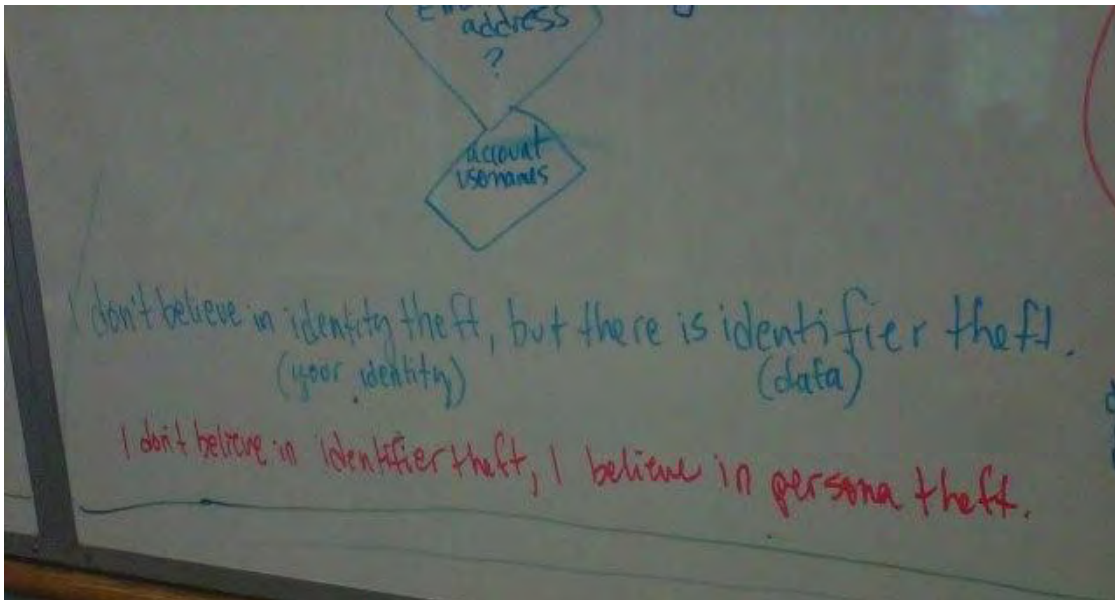 address
?
account
usernames
I don't believe in identity theft, but there is identifier theft.
(your identity) (data)
I don't believe in identifier theft, I believe in persona theft.